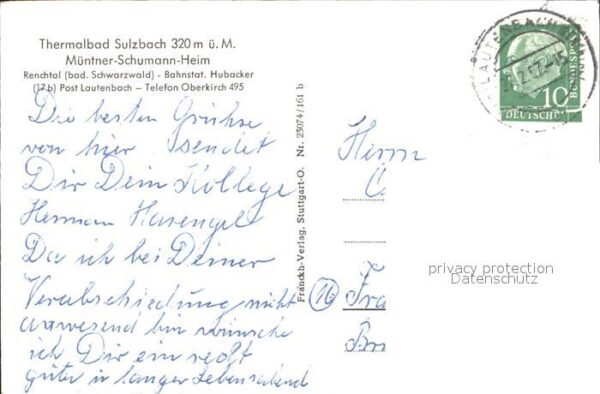 Thermalbad Sulzbach 320 m ü. M.
Müntner-Schumann-Heim
Renchtal (bad. Schwarzwald) - Bahnstat. Hubacker
(17b) Post Lautenbach — Telefon Oberkirch 495
Die besten Grühse
von hier sendet
Dir Dein Kollege
Herman Harengel
Da ich bei Deiner
Verabschiedung nicht
anwesend bin wünsche
ich Dir ein recht
guter u langer Lebensabend
Franckh-Verlag, Stuttgart-O. Nr. 23074/161 b
LAUTENBACH
10
DEUTSCHE
BUNDESPOST
Herrn
(16) Fra
privacy protection
Datenschutz